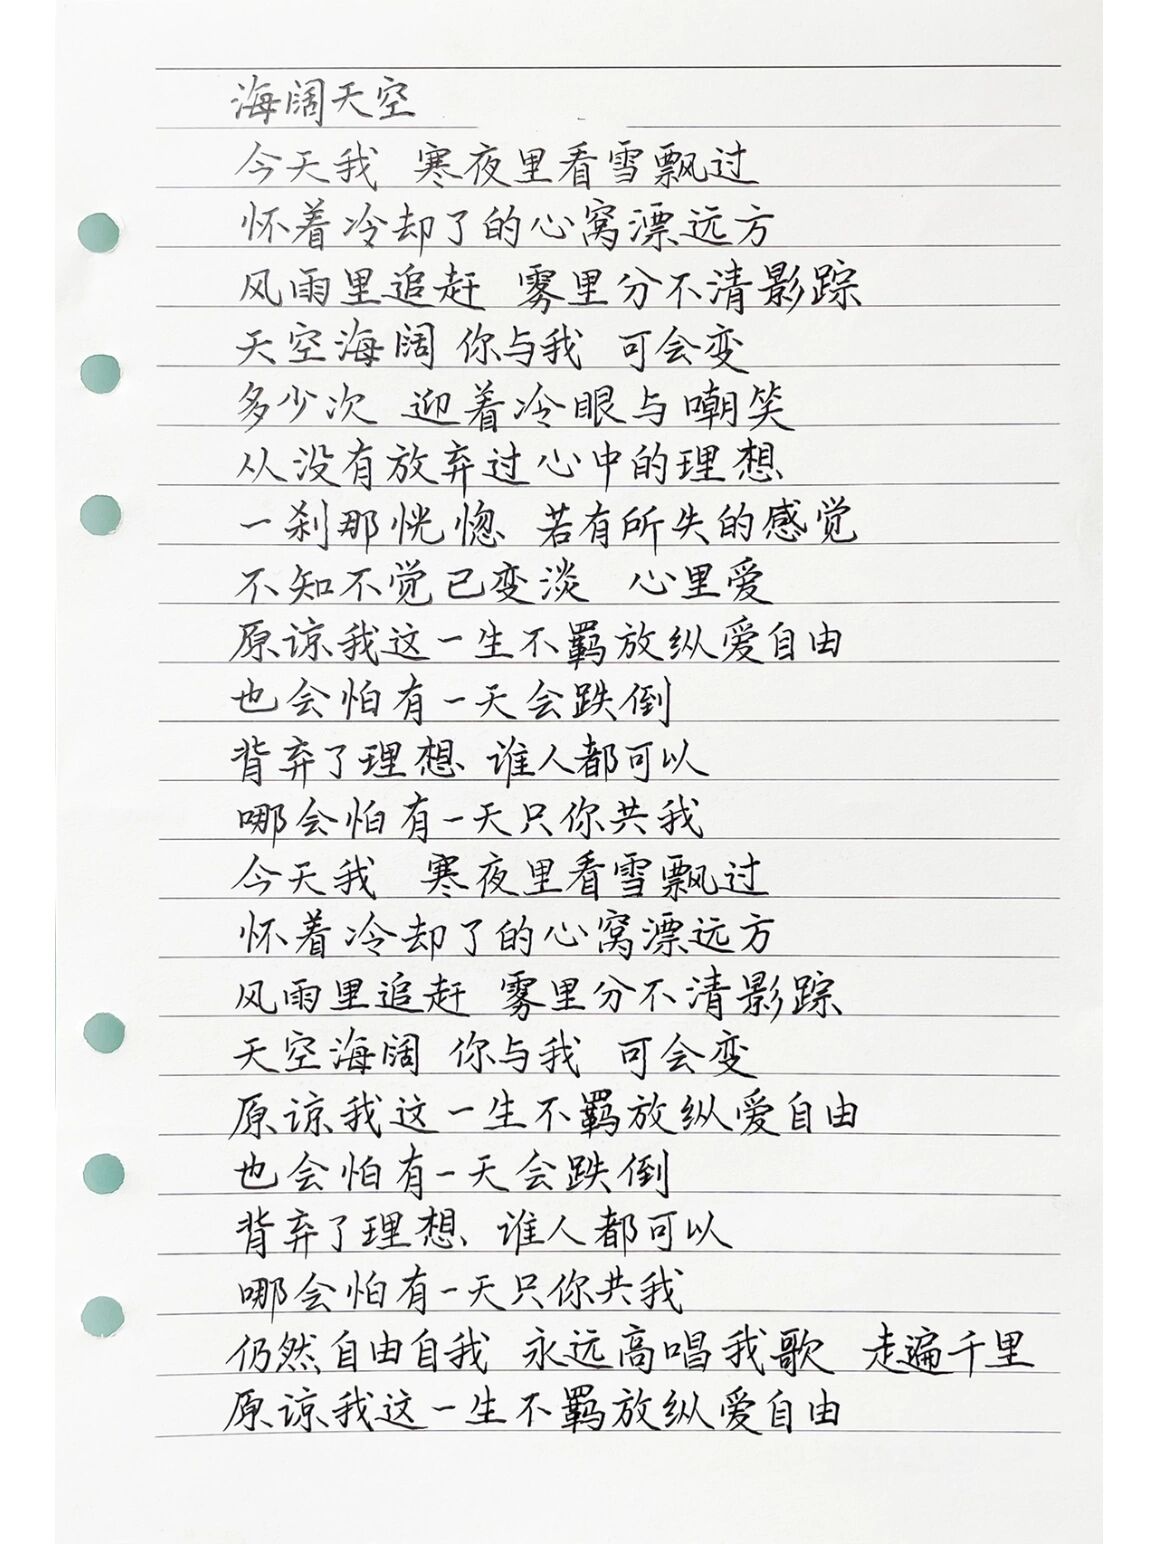 海阔天空
今天我 寒夜里看雪飘过
怀着冷却了的心窝漂远方
风雨里追赶 雾里分不清影踪
天空海阔 你与我 可会变
多少次 迎着冷眼与嘲笑
从没有放弃过心中的理想
一刹那恍惚 若有所失的感觉
不知不觉已变淡 心里爱
原谅我这一生不羁放纵爱自由
也会怕有一天会跌倒
背弃了理想 谁人都可以
哪会怕有一天只你共我
今天我 寒夜里看雪飘过
怀着冷却了的心窝漂远方
风雨里追赶 雾里分不清影踪
天空海阔 你与我 可会变
原谅我这一生不羁放纵爱自由
也会怕有一天会跌倒
背弃了理想 谁人都可以
哪会怕有一天只你共我
仍然自由自我 永远高唱我歌 走遍千里
原谅我这一生不羁放纵爱自由